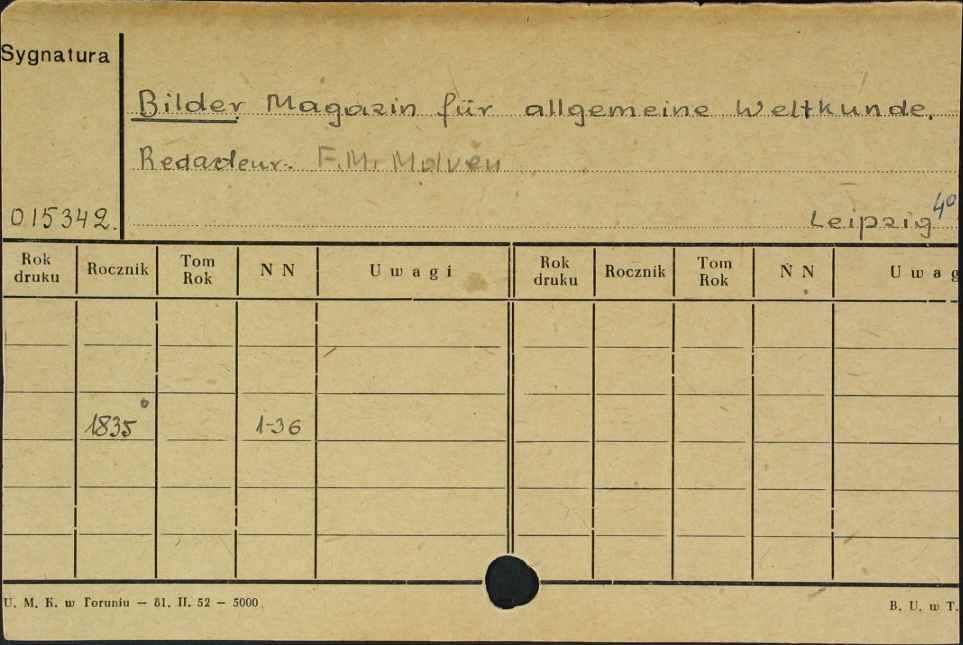 Sygnatura
Bilder Magazin für allgemeine Weltkunde.
Redacteur. F.M. Malven
015342.
Leipzig 4⁰
Rok druku Rocznik Tom Rok N N Uwagi Rok druku Rocznik Tom Rok N N Uwag
1835⁰ 1-36
U. M. K. w Toruniu — 51. II. 52 — 5000
B. U. w T.